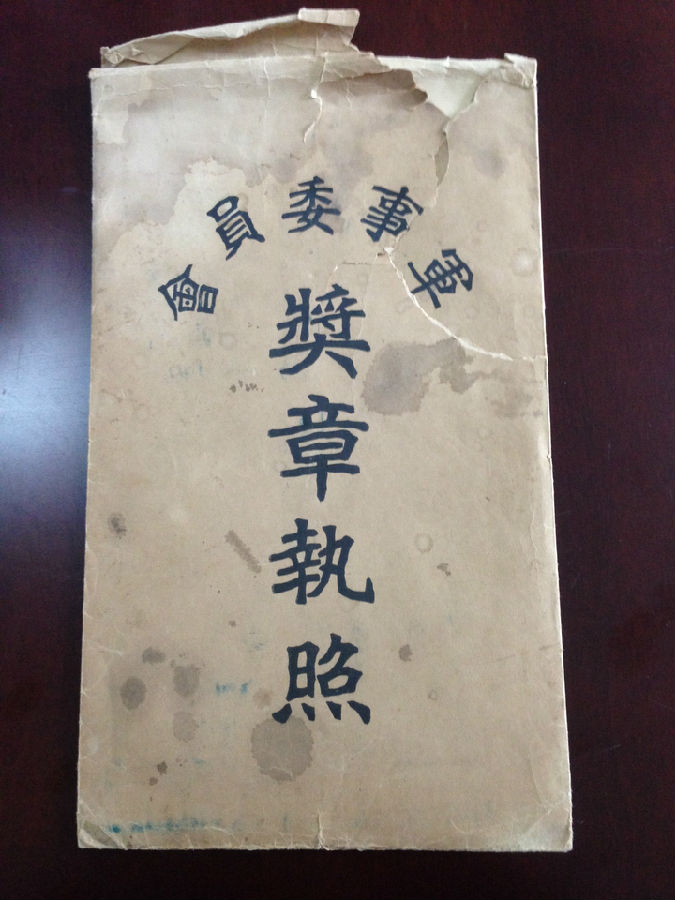 軍事委員會
獎章執照